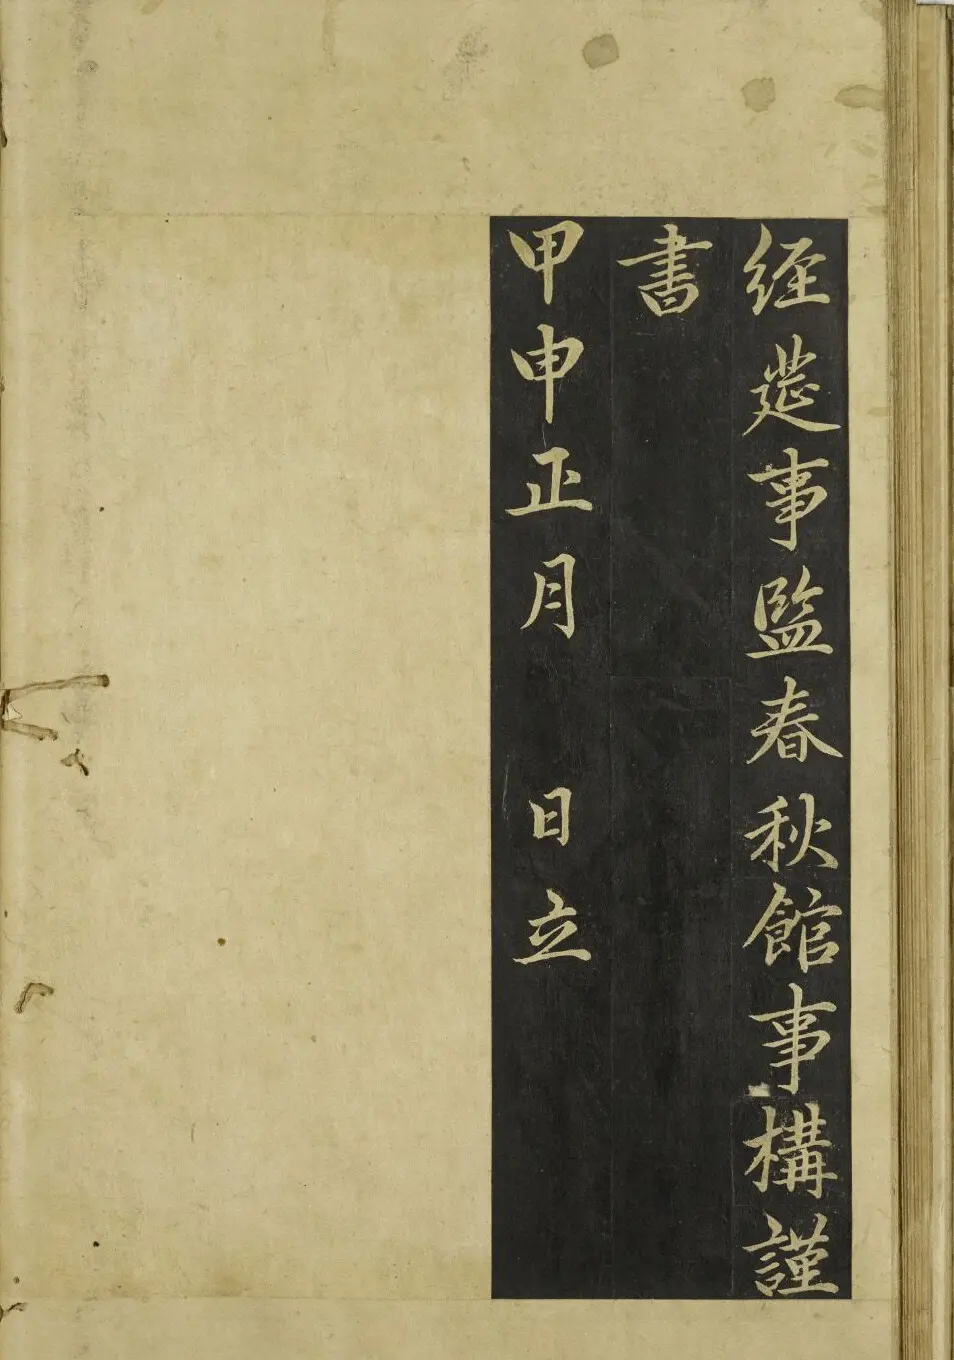 経筵事監春秋館事構謹
書
甲申正月 日立